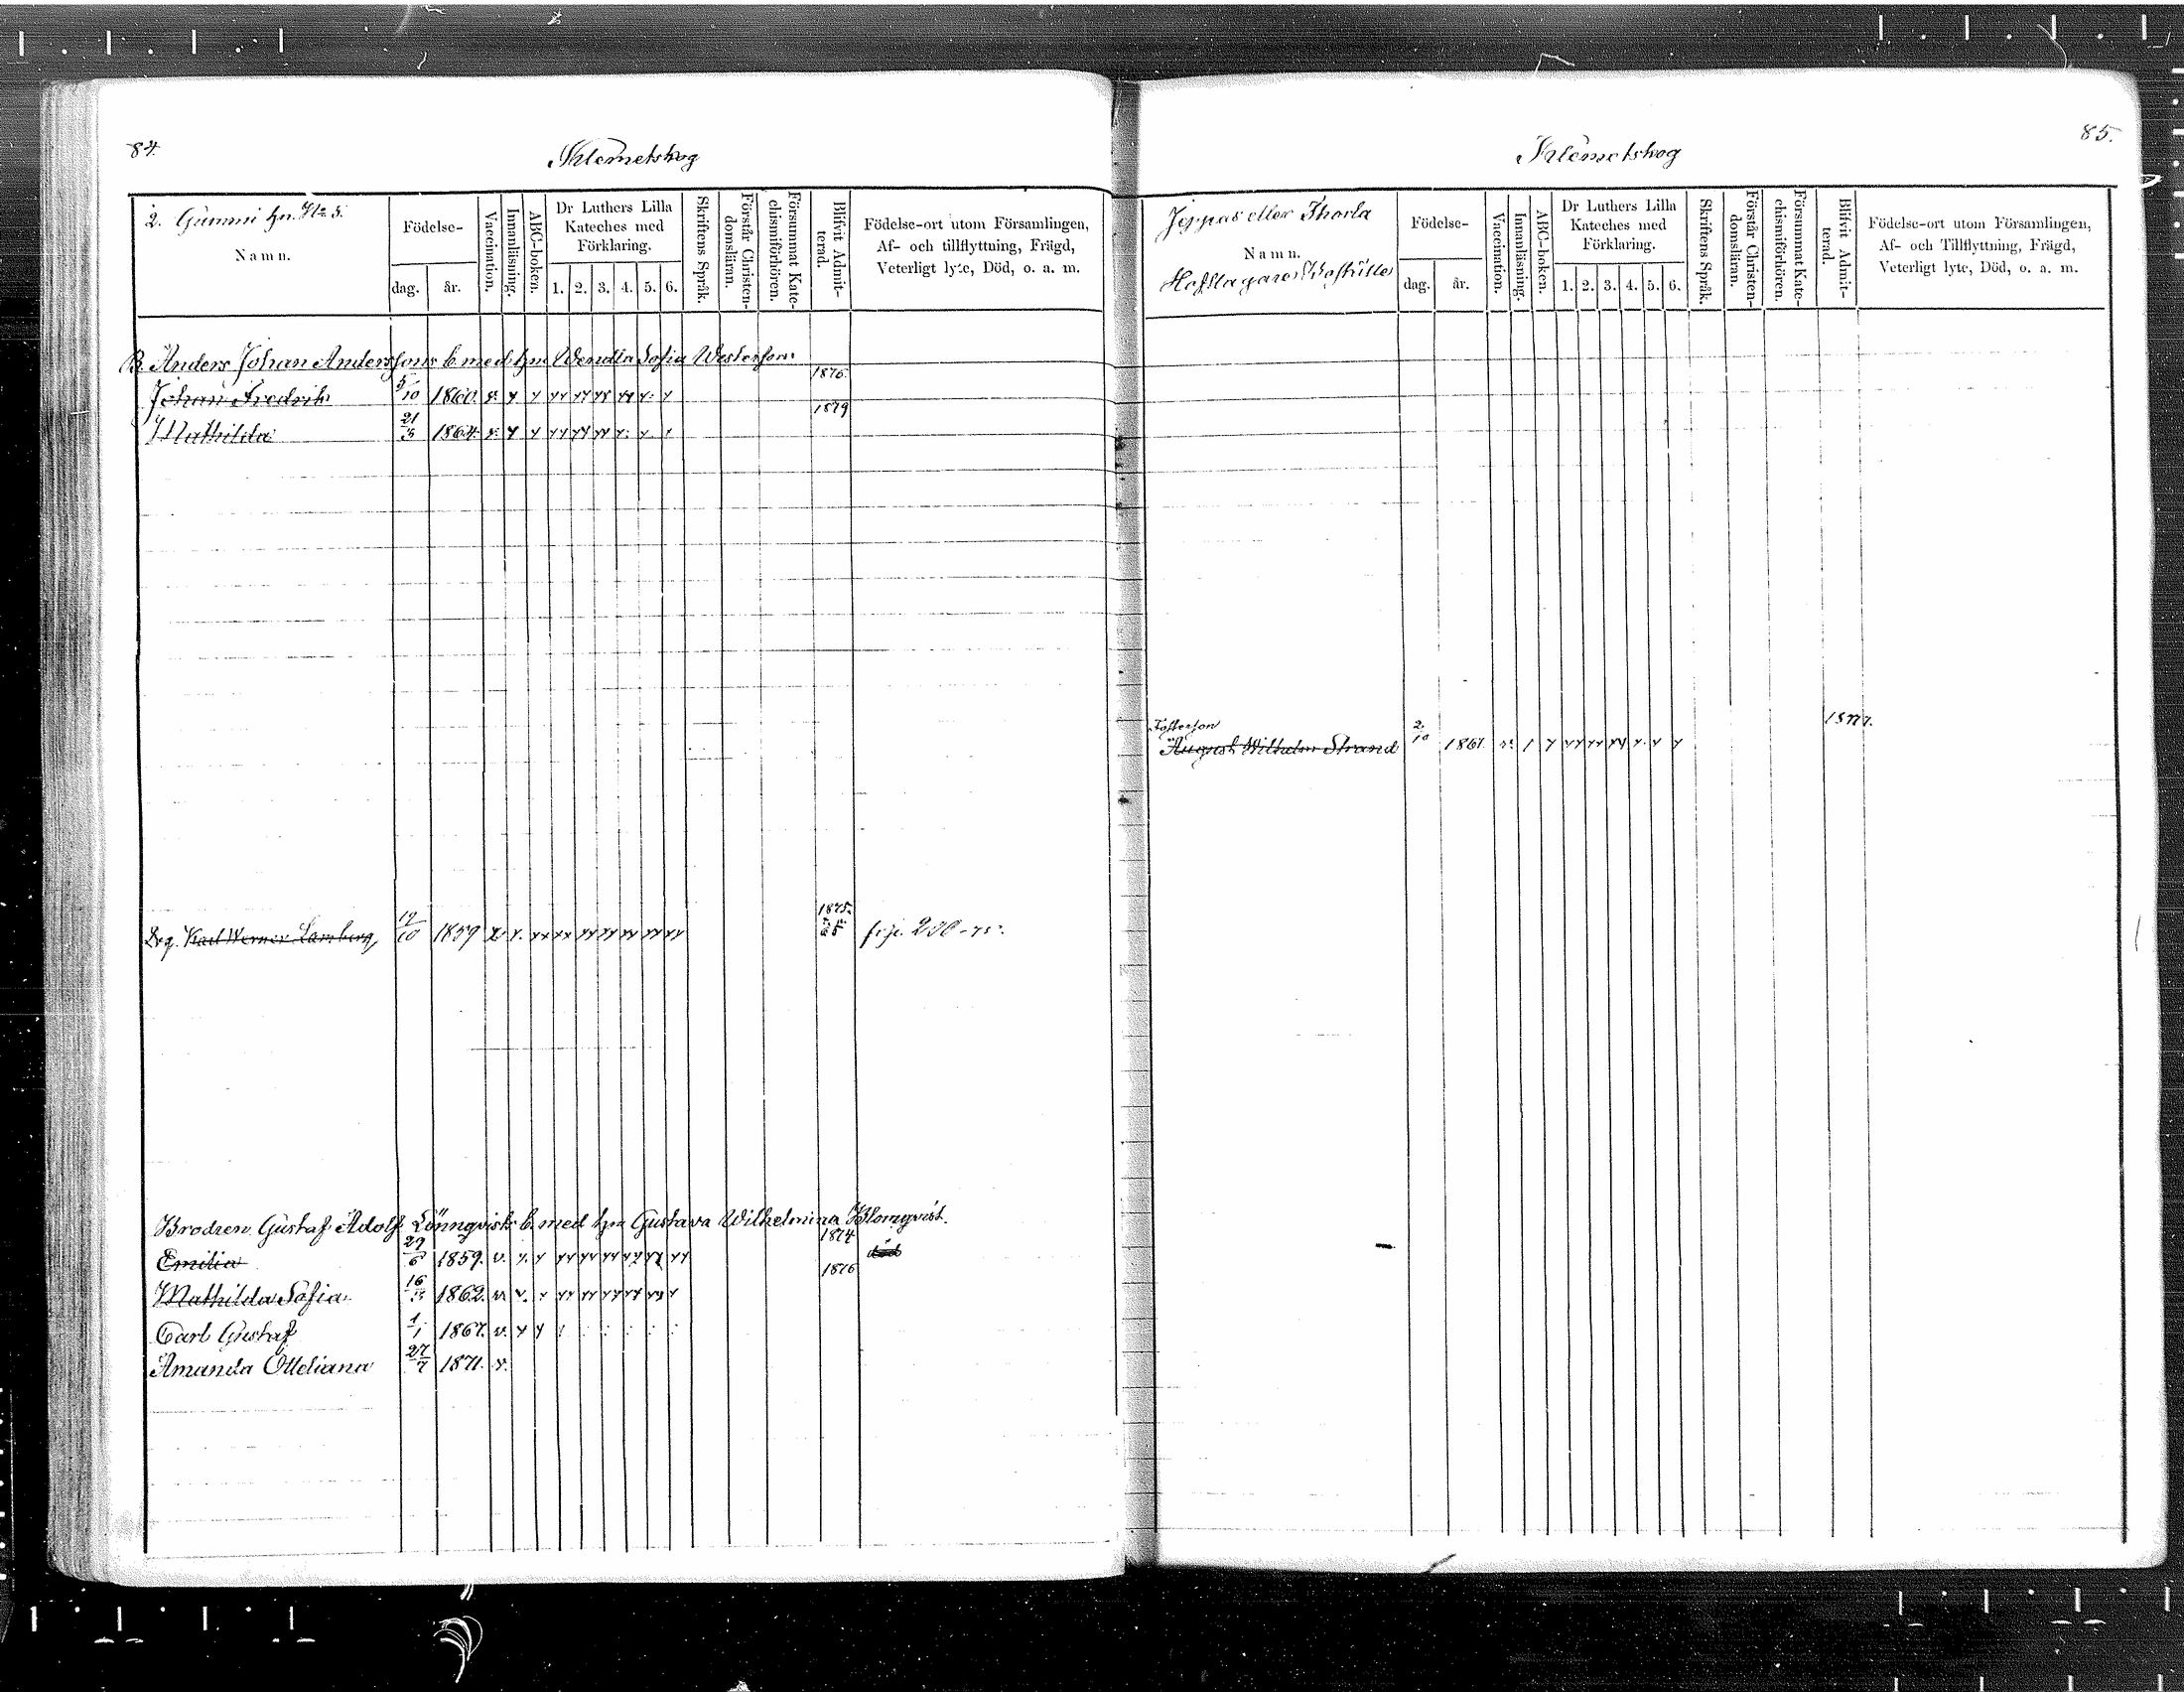 84.
Klemetskog
2. Gummi hn. No 5.
Namn.
Födelse-
dag.
år.
Vaccination.
Innanläsning.
ABC-boken.
Dr Luthers Lilla
Kateches med
Förklaring.
1. 2. 3. 4. 5. 6.
Skriftens Språk.
Förstår Christen-
domsläran.
Försummat Kate-
chismiförhören.
Blifvit Admit-
terad.
Födelse-ort utom Församlingen,
Af- och tillflyttning, Frägd,
Veterligt lyte, Död, o. a. m.
B. Anders Johan Anderssons b. med hu Wendla Sofia
Johan Fredrik 5/10 1860. 1876.
Mathilda 21/3 1864. 1879
Drg. Karl Werner Lamberg, 19/10 1859 1875.
Brodren Gustaf Adolf Lönnqvists b. med hu Gustava Wilhelmina Blomqvist.
Emilia 29/6 1859. v. 1874 död
Mathilda Sofia 16/3 1862. 1876
Carl Gustaf 1/1 1867. v.
Amanda Otteliana 27/7 1871. v.
85.
Klemetskog
Jeppas eller Thorla
Namn.
Hofslagare Boställe
Födelse-
dag.
år.
Vaccination.
Innanläsning.
ABC-boken.
Dr Luthers Lilla
Kateches med
Förklaring.
1. 2. 3. 4. 5. 6.
Skriftens Språk.
Förstår Christen-
domsläran.
Försummat Kate-
chismiförhören.
Blifvit Admit-
terad.
Födelse-ort utom Församlingen,
Af- och Tillflyttning, Frägd,
Veterligt lyte, Död, o. a. m.
Fosterson
August Wilhelm Strand 2/10 1861. 1877.